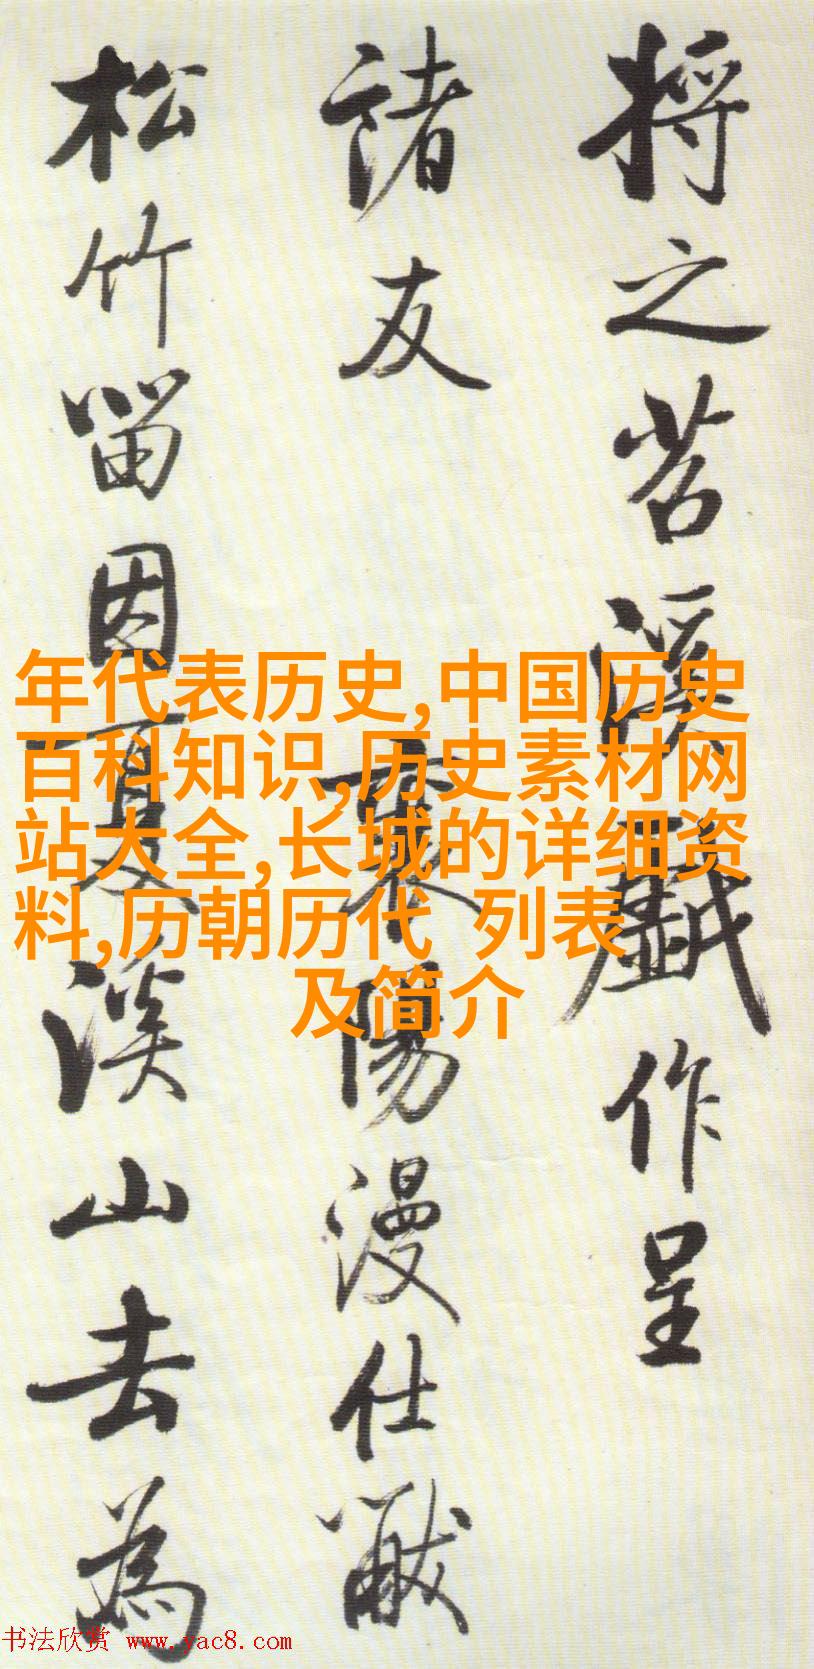 將之苕溪戲作呈
諸友 襄陽漫仕黻
松竹留因夏溪山去為
年代表历史,中国历史
百科知识,历史素材网
站大全,长城的详细资
料,历朝历代 列表
及简介
书法欣赏 www.yac8.com